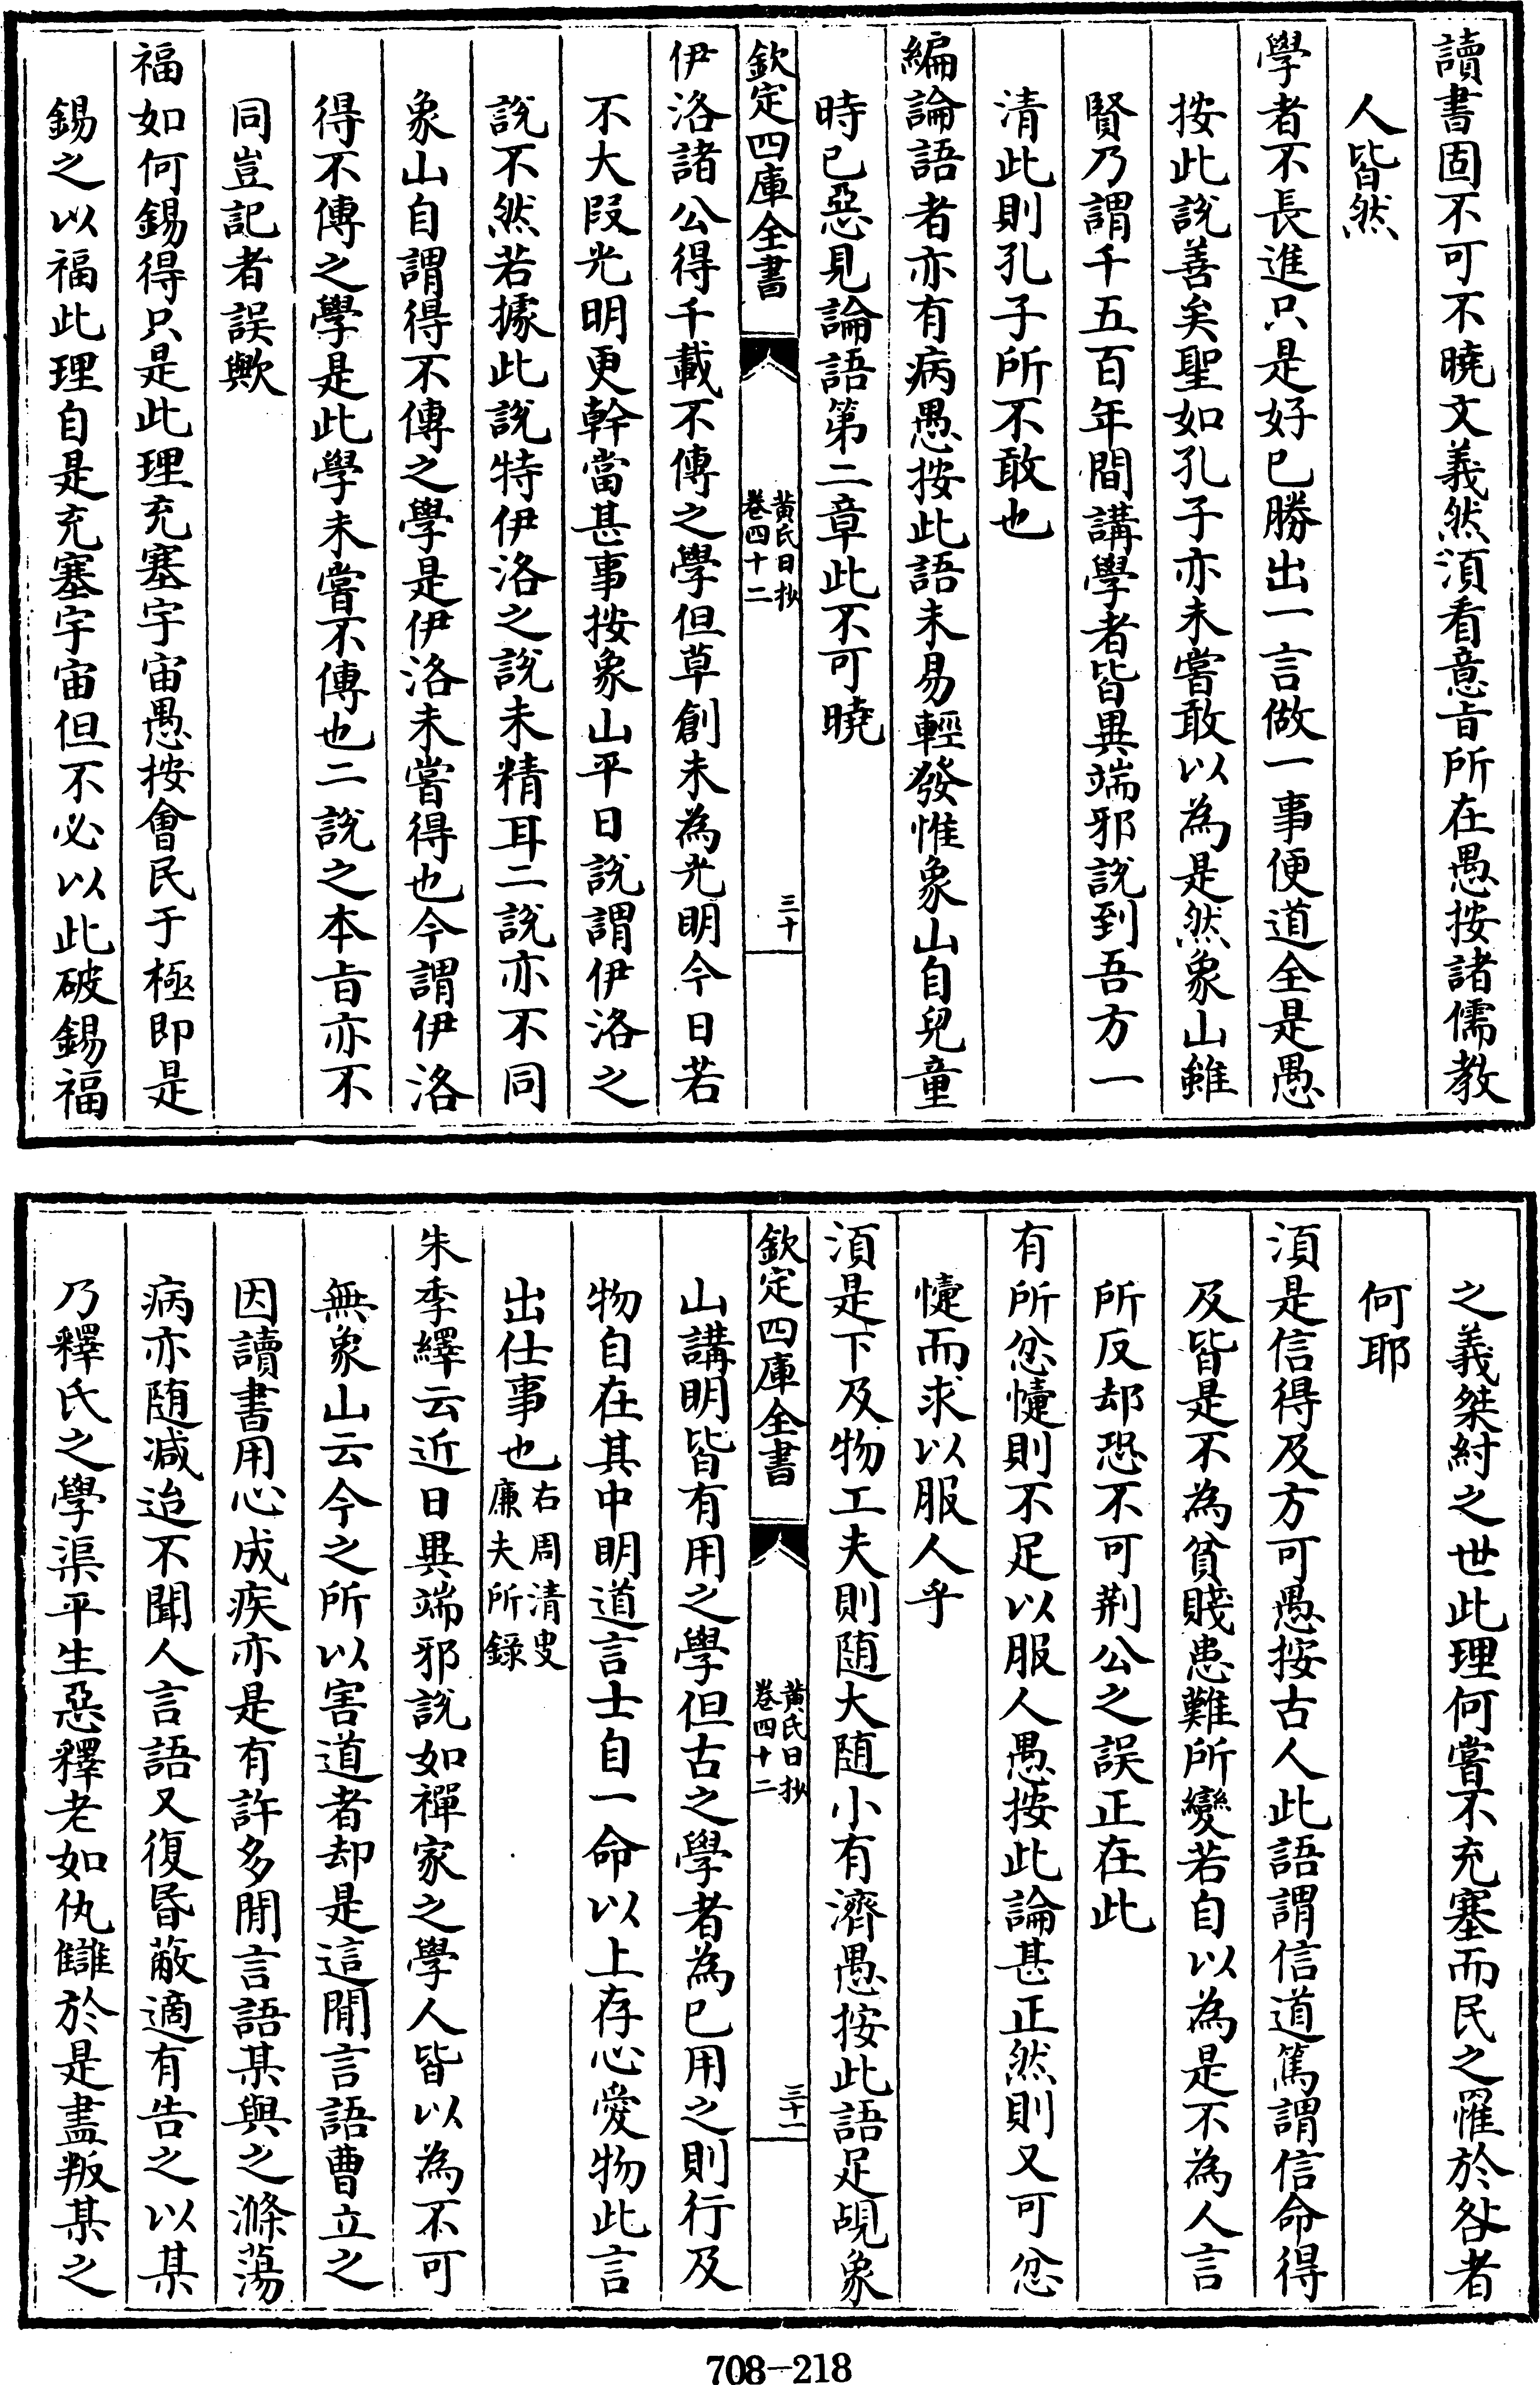 讀書固不可不曉文義然湏看意㫖所在愚按諸儒教
人皆然
學者不長進只是好已勝出一言做一事便道全是愚
按此説善矣聖如孔子亦未嘗敢以為是然象山雖
賢乃謂千五百年間講學者皆異端邪説到吾方一
清此則孔子所不敢也
編論語者亦有病愚按此語未易輕發惟象山自兒童
時已惡見論語第二章此不可曉
欽定四庫全書
黄氏日抄
卷四十二
三十
伊洛諸公得千載不傳之學但草創未為光明今日若
不大叚光明更幹當甚事按象山平日説謂伊洛之
説不然若據此説特伊洛之説未精耳二説亦不同
象山自謂得不傳之學是伊洛未嘗得也今謂伊洛
得不傳之學是此學未嘗不傳也二説之本㫖亦不
同豈記者誤歟
福如何錫得只是此理充塞宇宙愚按㑹民于極即是
錫之以福此理自是充塞宇宙但不必以此破錫福
之義桀紂之世此理何嘗不充塞而民之罹於咎者
何耶
湏是信得及方可愚按古人此語謂信道篤謂信命得
及皆是不為貧賤患難所變若自以為是不為人言
所反却恐不可荆公之誤正在此
有所忿懥則不足以服人愚按此論甚正然則又可忿
懥而求以服人乎
湏是下及物工夫則随大随小有濟愚按此語足覘象
欽定四庫全書
黄氏日抄
卷四十二
三十一
山講明皆有用之學但古之學者為已用之則行及
物自在其中明道言士自一命以上存心愛物此言
出仕事也右周清叟
廉夫所録
朱季繹云近日異端邪説如禪家之學人皆以為不可
無象山云今之所以害道者却是這閒言語曹立之
因讀書用心成疾亦是有許多閒言語某與之滌蕩
病亦随减迨不聞人言語又復昏蔽適有告之以某
乃釋氏之學渠平生惡釋老如仇讎於是盡叛某之
708-218